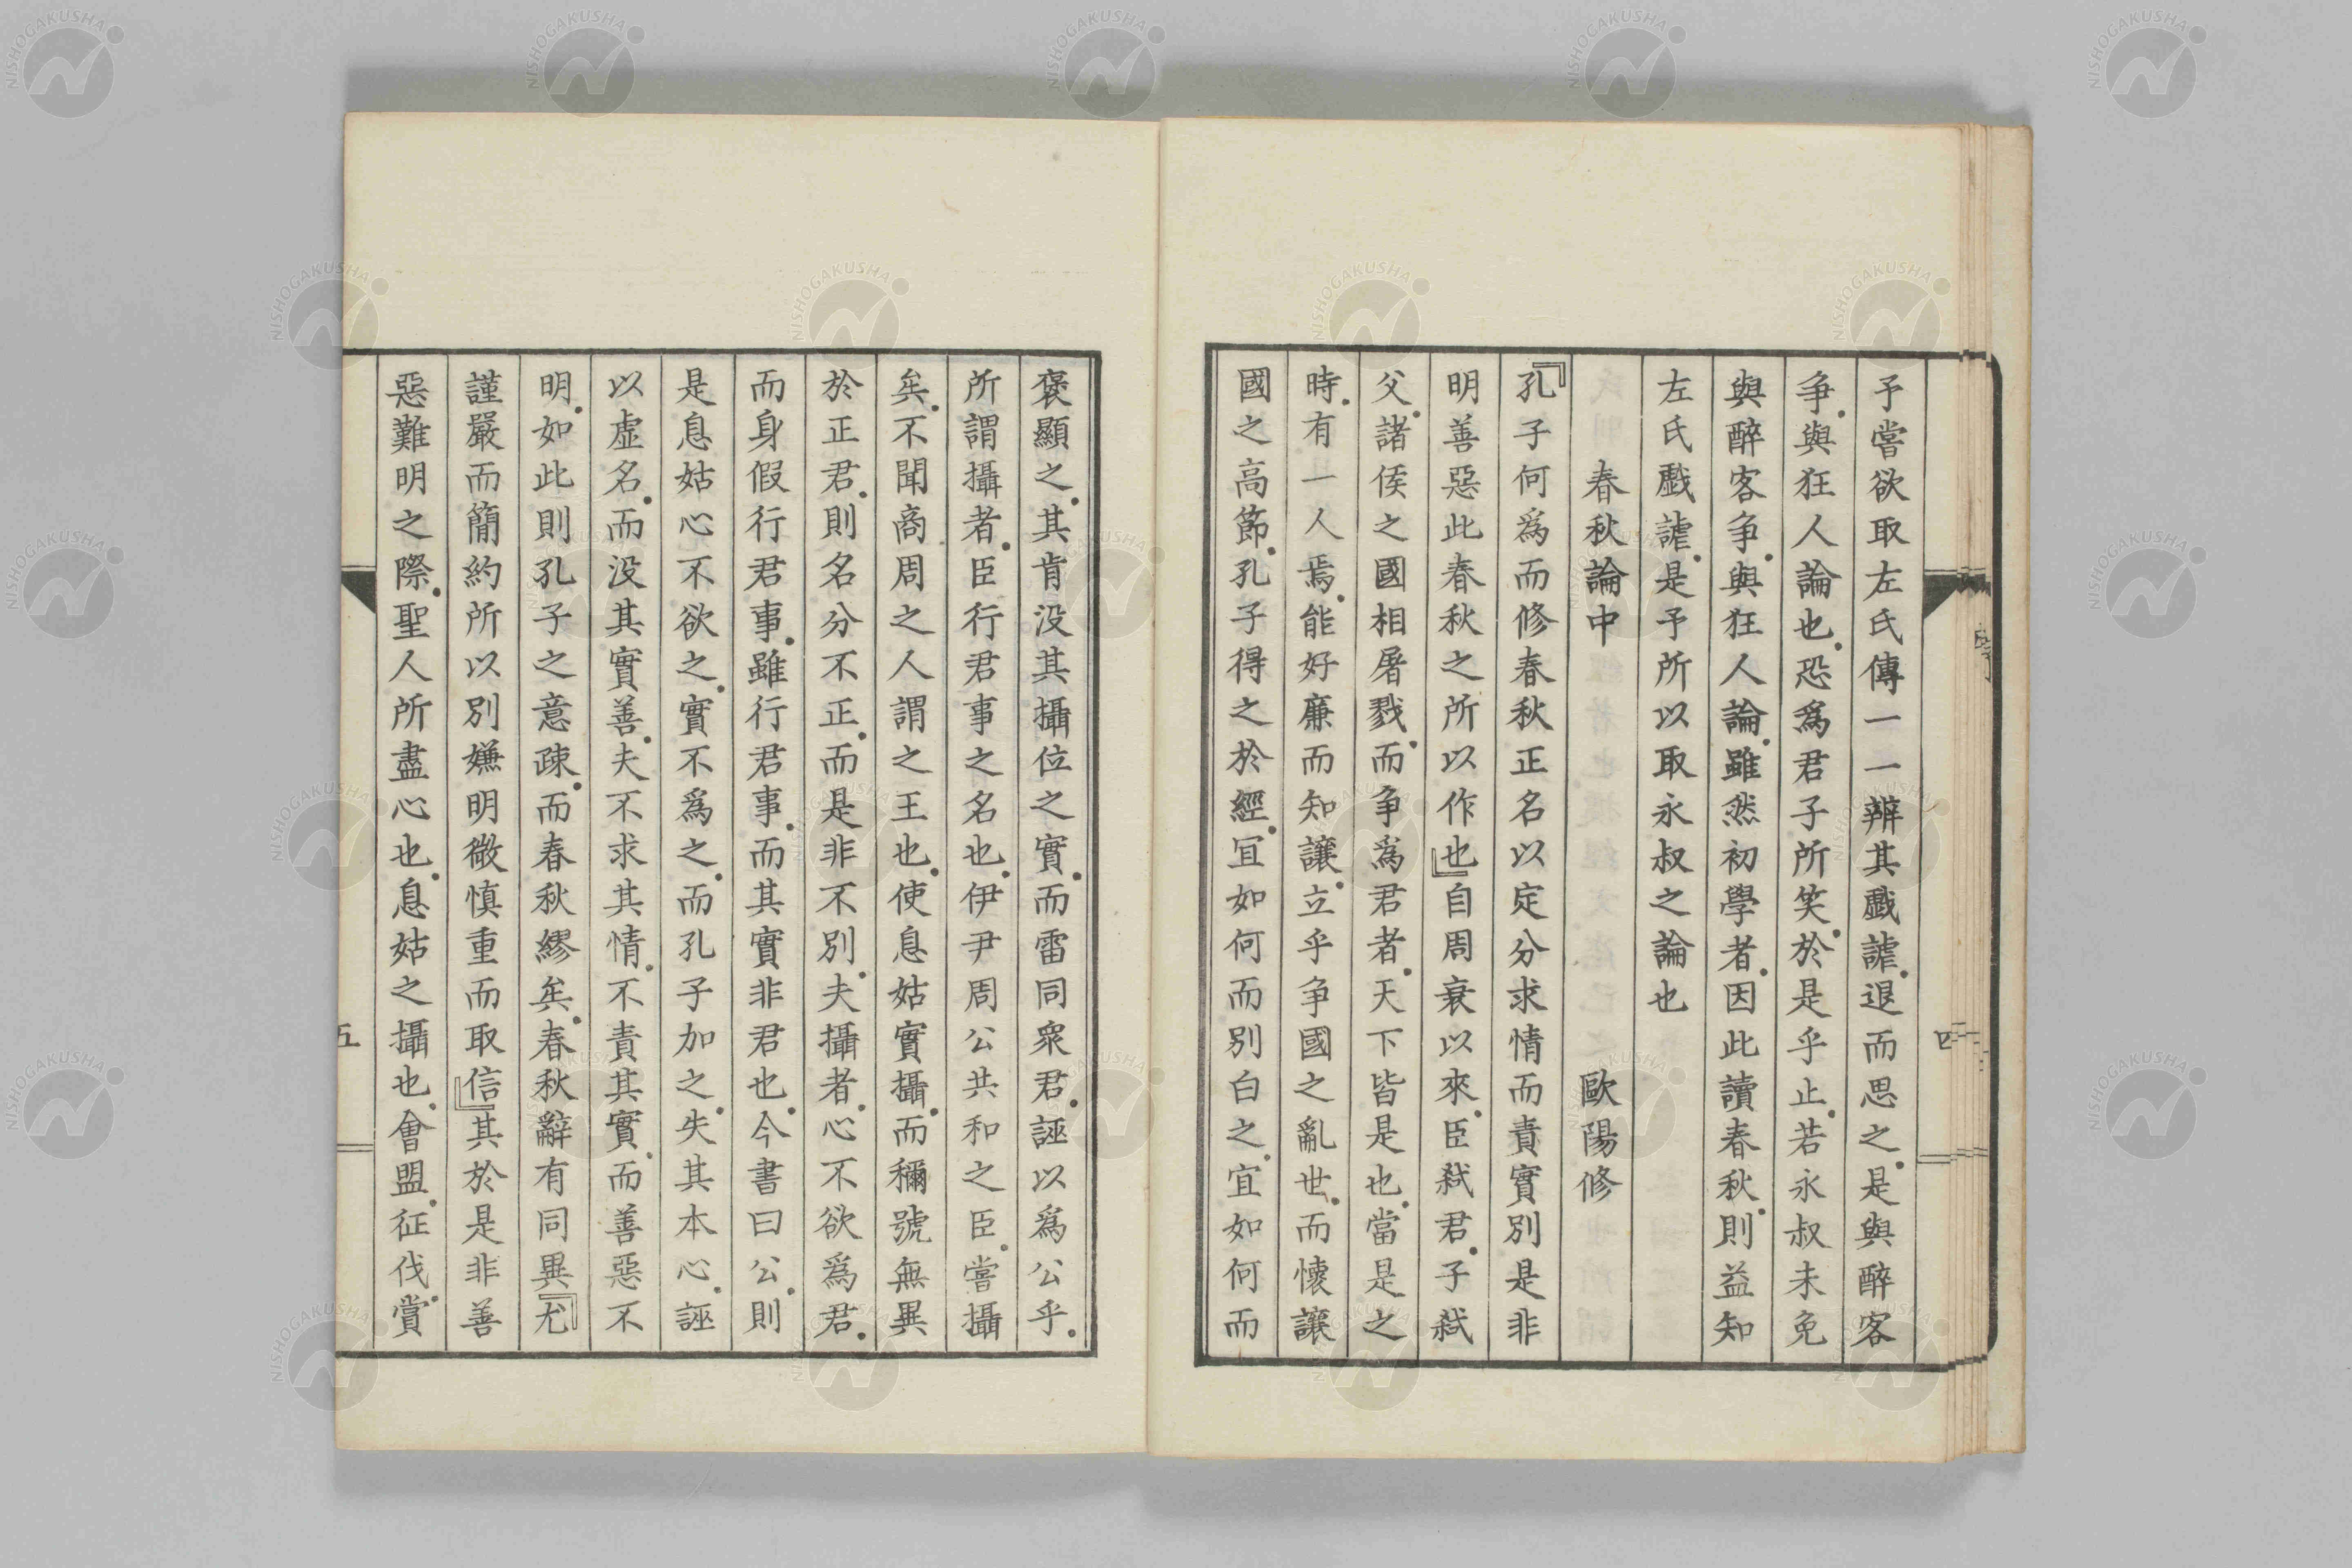 予嘗欲取左氏傳一一辨其戲謔退而思之是與醉客
争與狂人論也恐爲君子所笑於是乎止若永叔未免
與醉客争與狂人論雖然初學者因此讀春秋則益知
左氏戲謔是予所以取永叔之論也
春秋論中 歐陽修
『孔子何爲而修春秋正名以定分求情而責實別是非
明善惡此春秋之所以作也』自周衰以來臣弑君子弑
父諸侯之國相屠戮而争爲君者天下皆是也當是之
時有一人焉能好廉而知讓立乎争國之亂世而懷讓
國之高節孔子得之於經宜如何而別白之宜如何而
褒顯之其肯没其攝位之實而雷同衆君誣以爲公乎
所謂攝者臣行君事之名也伊尹周公共和之臣嘗攝
矣不聞商周之人謂之王也使息姑實攝而稱號無異
於正君則名分不正而是非不別夫攝者心不欲爲君
而身假行君事雖行君事而其實非君也今書曰公則
是息姑心不欲之實不爲之而孔子加之失其本心誣
以虚名而没其實善夫不求其情不責其實而善惡不
明如此則孔子之意疎而春秋繆矣春秋辭有同異『尤
謹嚴而簡約所以別嫌明微慎重而取信』其於是非善
惡難明之際聖人所盡心也息姑之攝也會盟征伐賞
四
五
NISHOGAKUSHA